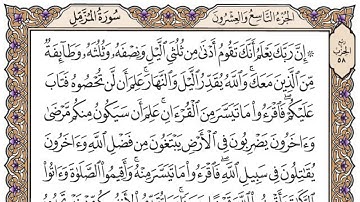 الجُزْءُ التَّاسِعُ وَالعِشْرُونَ سُورَةُ المُزَّمِّل
۞ إِنَّ رَبَّكَ يَعْلَمُ أَنَّكَ تَقُومُ أَدْنَىٰ مِن ثُلُثَيِ ٱلَّيْلِ وَنِصْفَهُۥ وَثُلُثَهُۥ وَطَآئِفَةٌ
مِّنَ ٱلَّذِينَ مَعَكَۚ وَٱللَّهُ يُقَدِّرُ ٱلَّيْلَ وَٱلنَّهَارَۚ عَلِمَ أَن لَّن تُحْصُوهُ فَتَابَ
عَلَيْكُمْۖ فَٱقْرَءُوا۟ مَا تَيَسَّرَ مِنَ ٱلْقُرْءَانِۚ عَلِمَ أَن سَيَكُونُ مِنكُم مَّرْضَىٰ
وَءَاخَرُونَ يَضْرِبُونَ فِى ٱلْأَرْضِ يَبْتَغُونَ مِن فَضْلِ ٱللَّهِ وَءَاخَرُونَ
يُقَٰتِلُونَ فِى سَبِيلِ ٱللَّهِۖ فَٱقْرَءُوا۟ مَا تَيَسَّرَ مِنْهُۚ وَأَقِيمُوا۟ ٱلصَّلَوٰةَ وَءَاتُوا۟
ربع
الحزب
٥٨